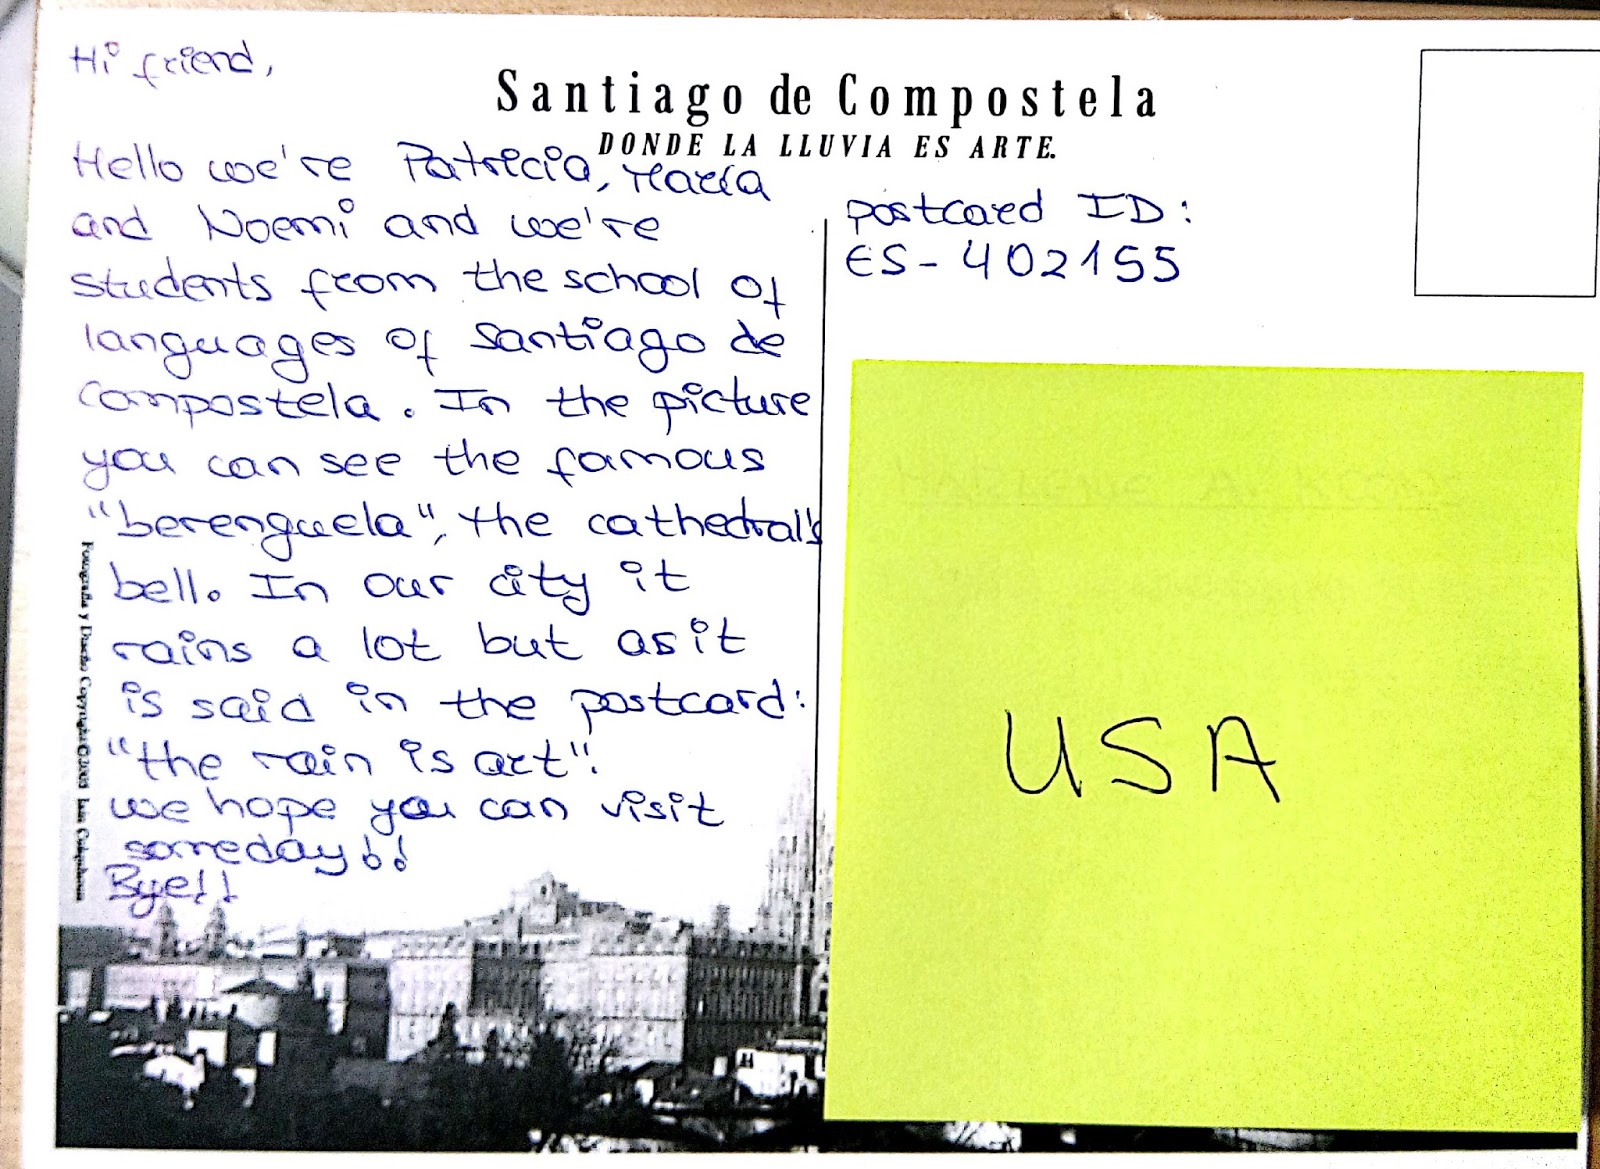 Hi friend,
Santiago de Compostela
DONDE LA LLUVIA ES ARTE.
Hello we're Patricia, María
and Noemi and we're
students from the school of
languages of Santiago de
Compostela. In the picture
you can see the famous
"berenguela", the cathedral's
bell. In our city it
rains a lot but as it
is said in the postcard:
"the rain is art".
we hope you can visit
someday!!
Bye!!
postcard ID:
ES-402155
USA
Fotografía y Diseño Copyright ©2003